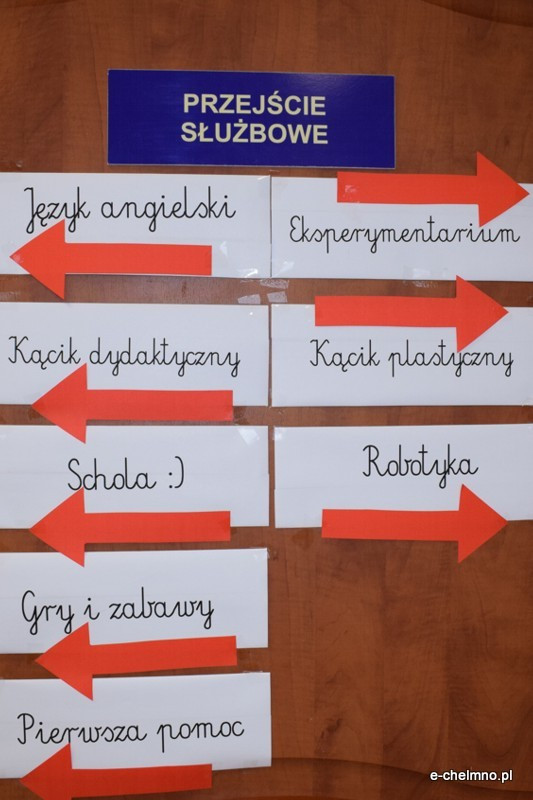 PRZEJŚCIE
SŁUŻBOWE
Język angielski
Eksperymentarium
Kącik dydaktyczny
Kącik plastyczny
Schola :)
Robotyka
Gry i zabawy
Pierwsza pomoc
e-chelmno.pl